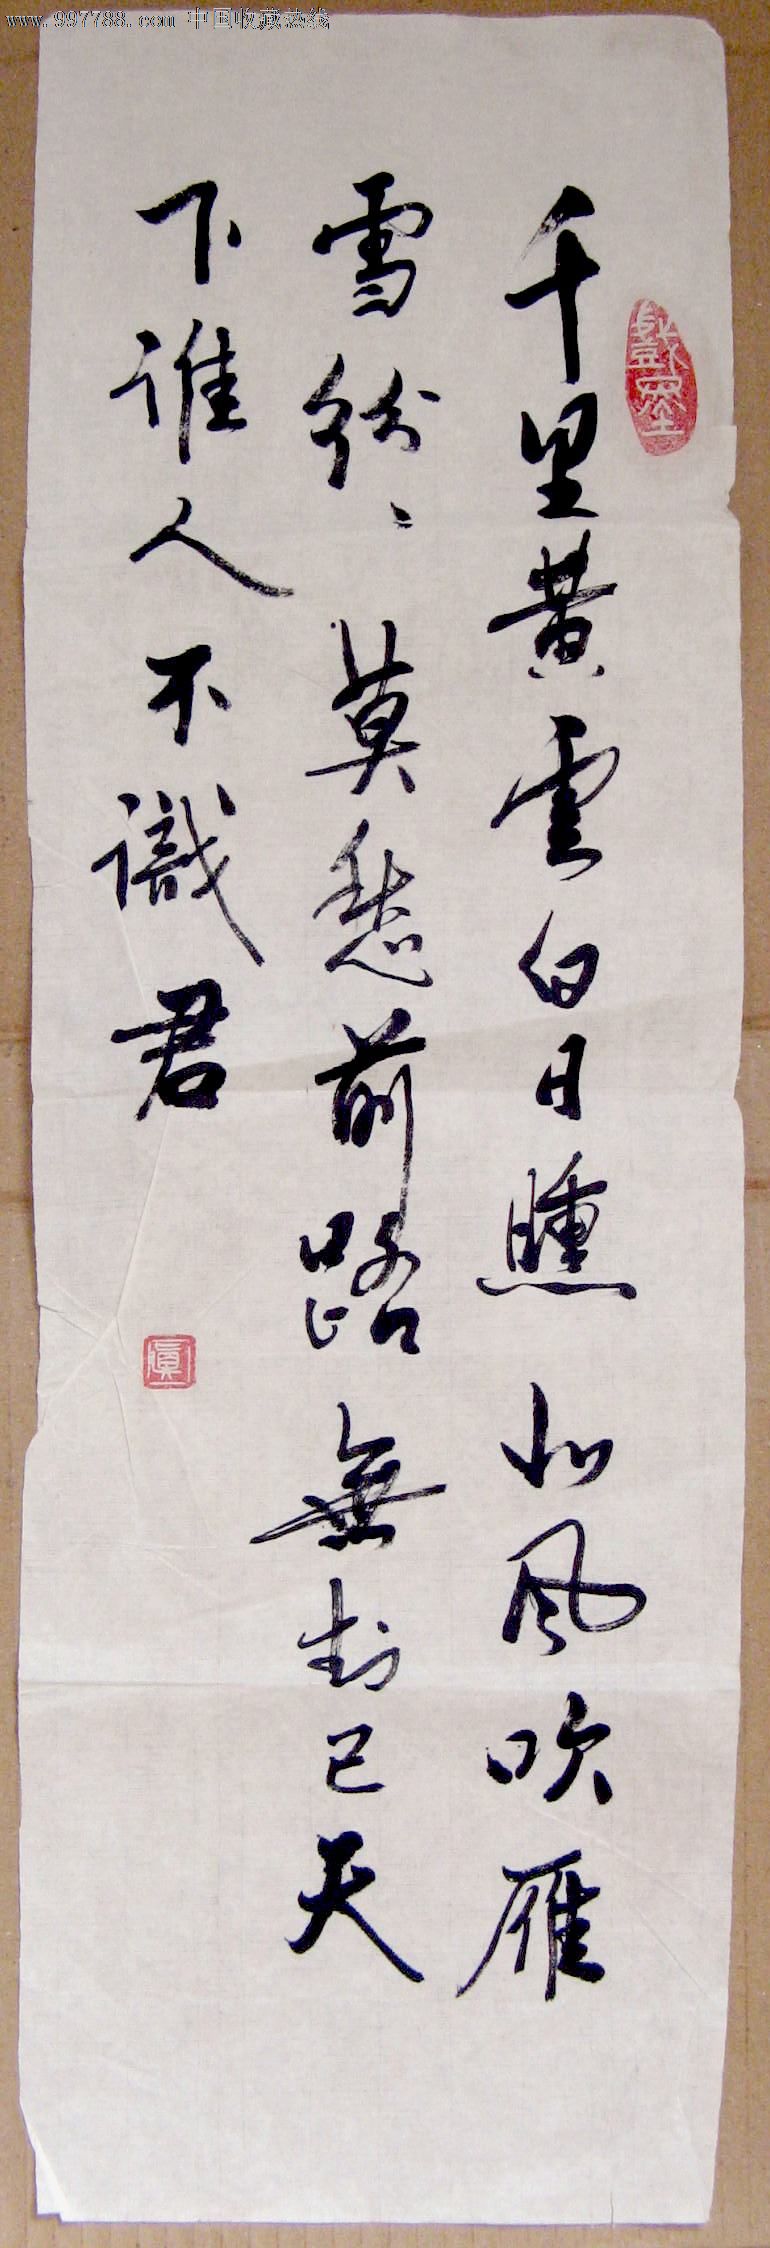 www.997788.com 中国收藏热线
千里黄雲白日曛北风吹雁
雪紛〻莫愁前路無封已天
下谁人不識君